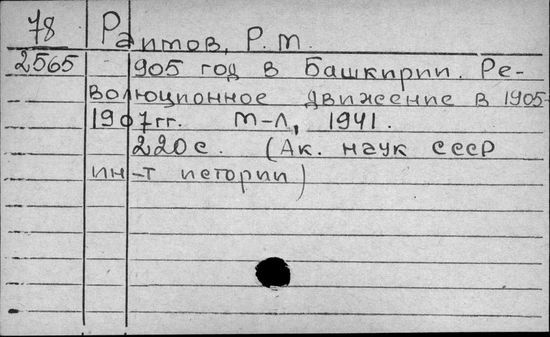 78 Раимов, Р. М.
2565 1905 год в Башкирии. Ре-
волюционное движение в 1905-
1907гг. М-Л, 1941.
220с. (Ак. наук СССР
ин-т истории)